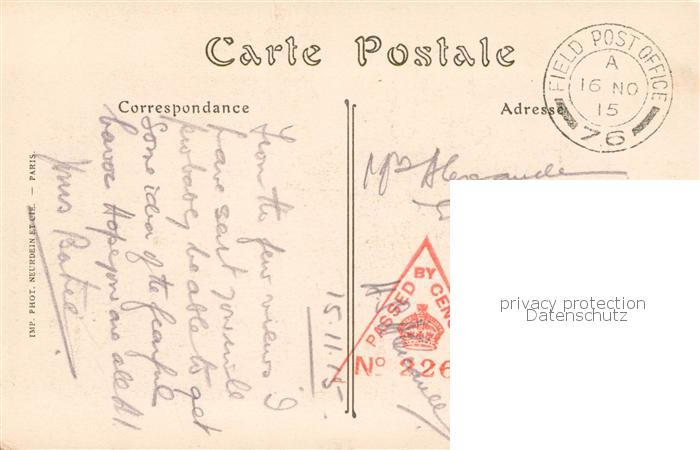 Carte Postale
Correspondance
Adresse
FIELD POST OFFICE
A
16 NO
15
76
From the few views I
have sent you will
probably be able to get
Some idea of the fearful
havoc Hope you are all A1.
Yours
15.11.15.
Mrs Alexander
PASSED BY CEN
No 226
IMP. PHOT. NEURDEIN ET CIE. — PARIS.
privacy protection
Datenschutz